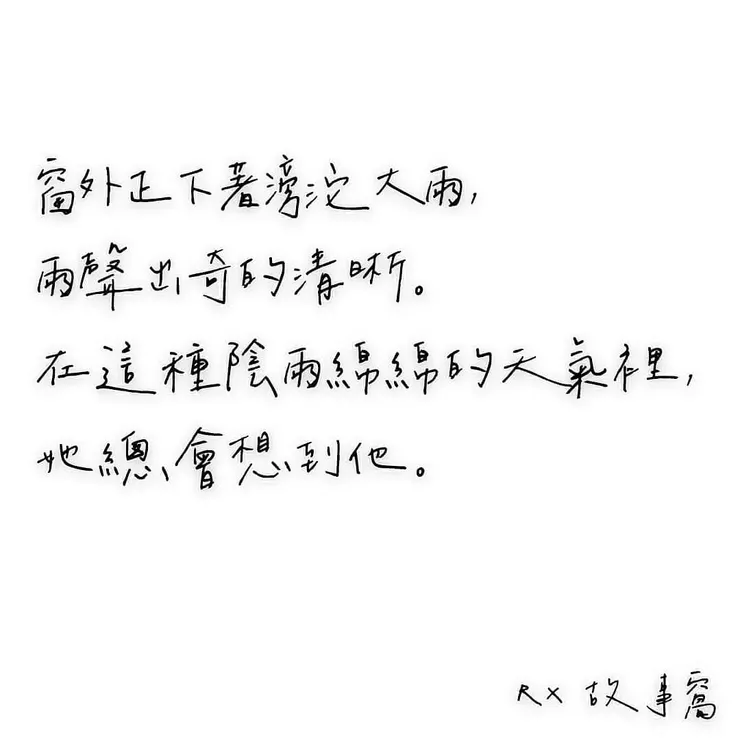 窗外正下著滂沱大雨,
雨聲出奇的清晰。
在這種陰雨綿綿的天氣裡,
她總會想到他。
RX 故事窩